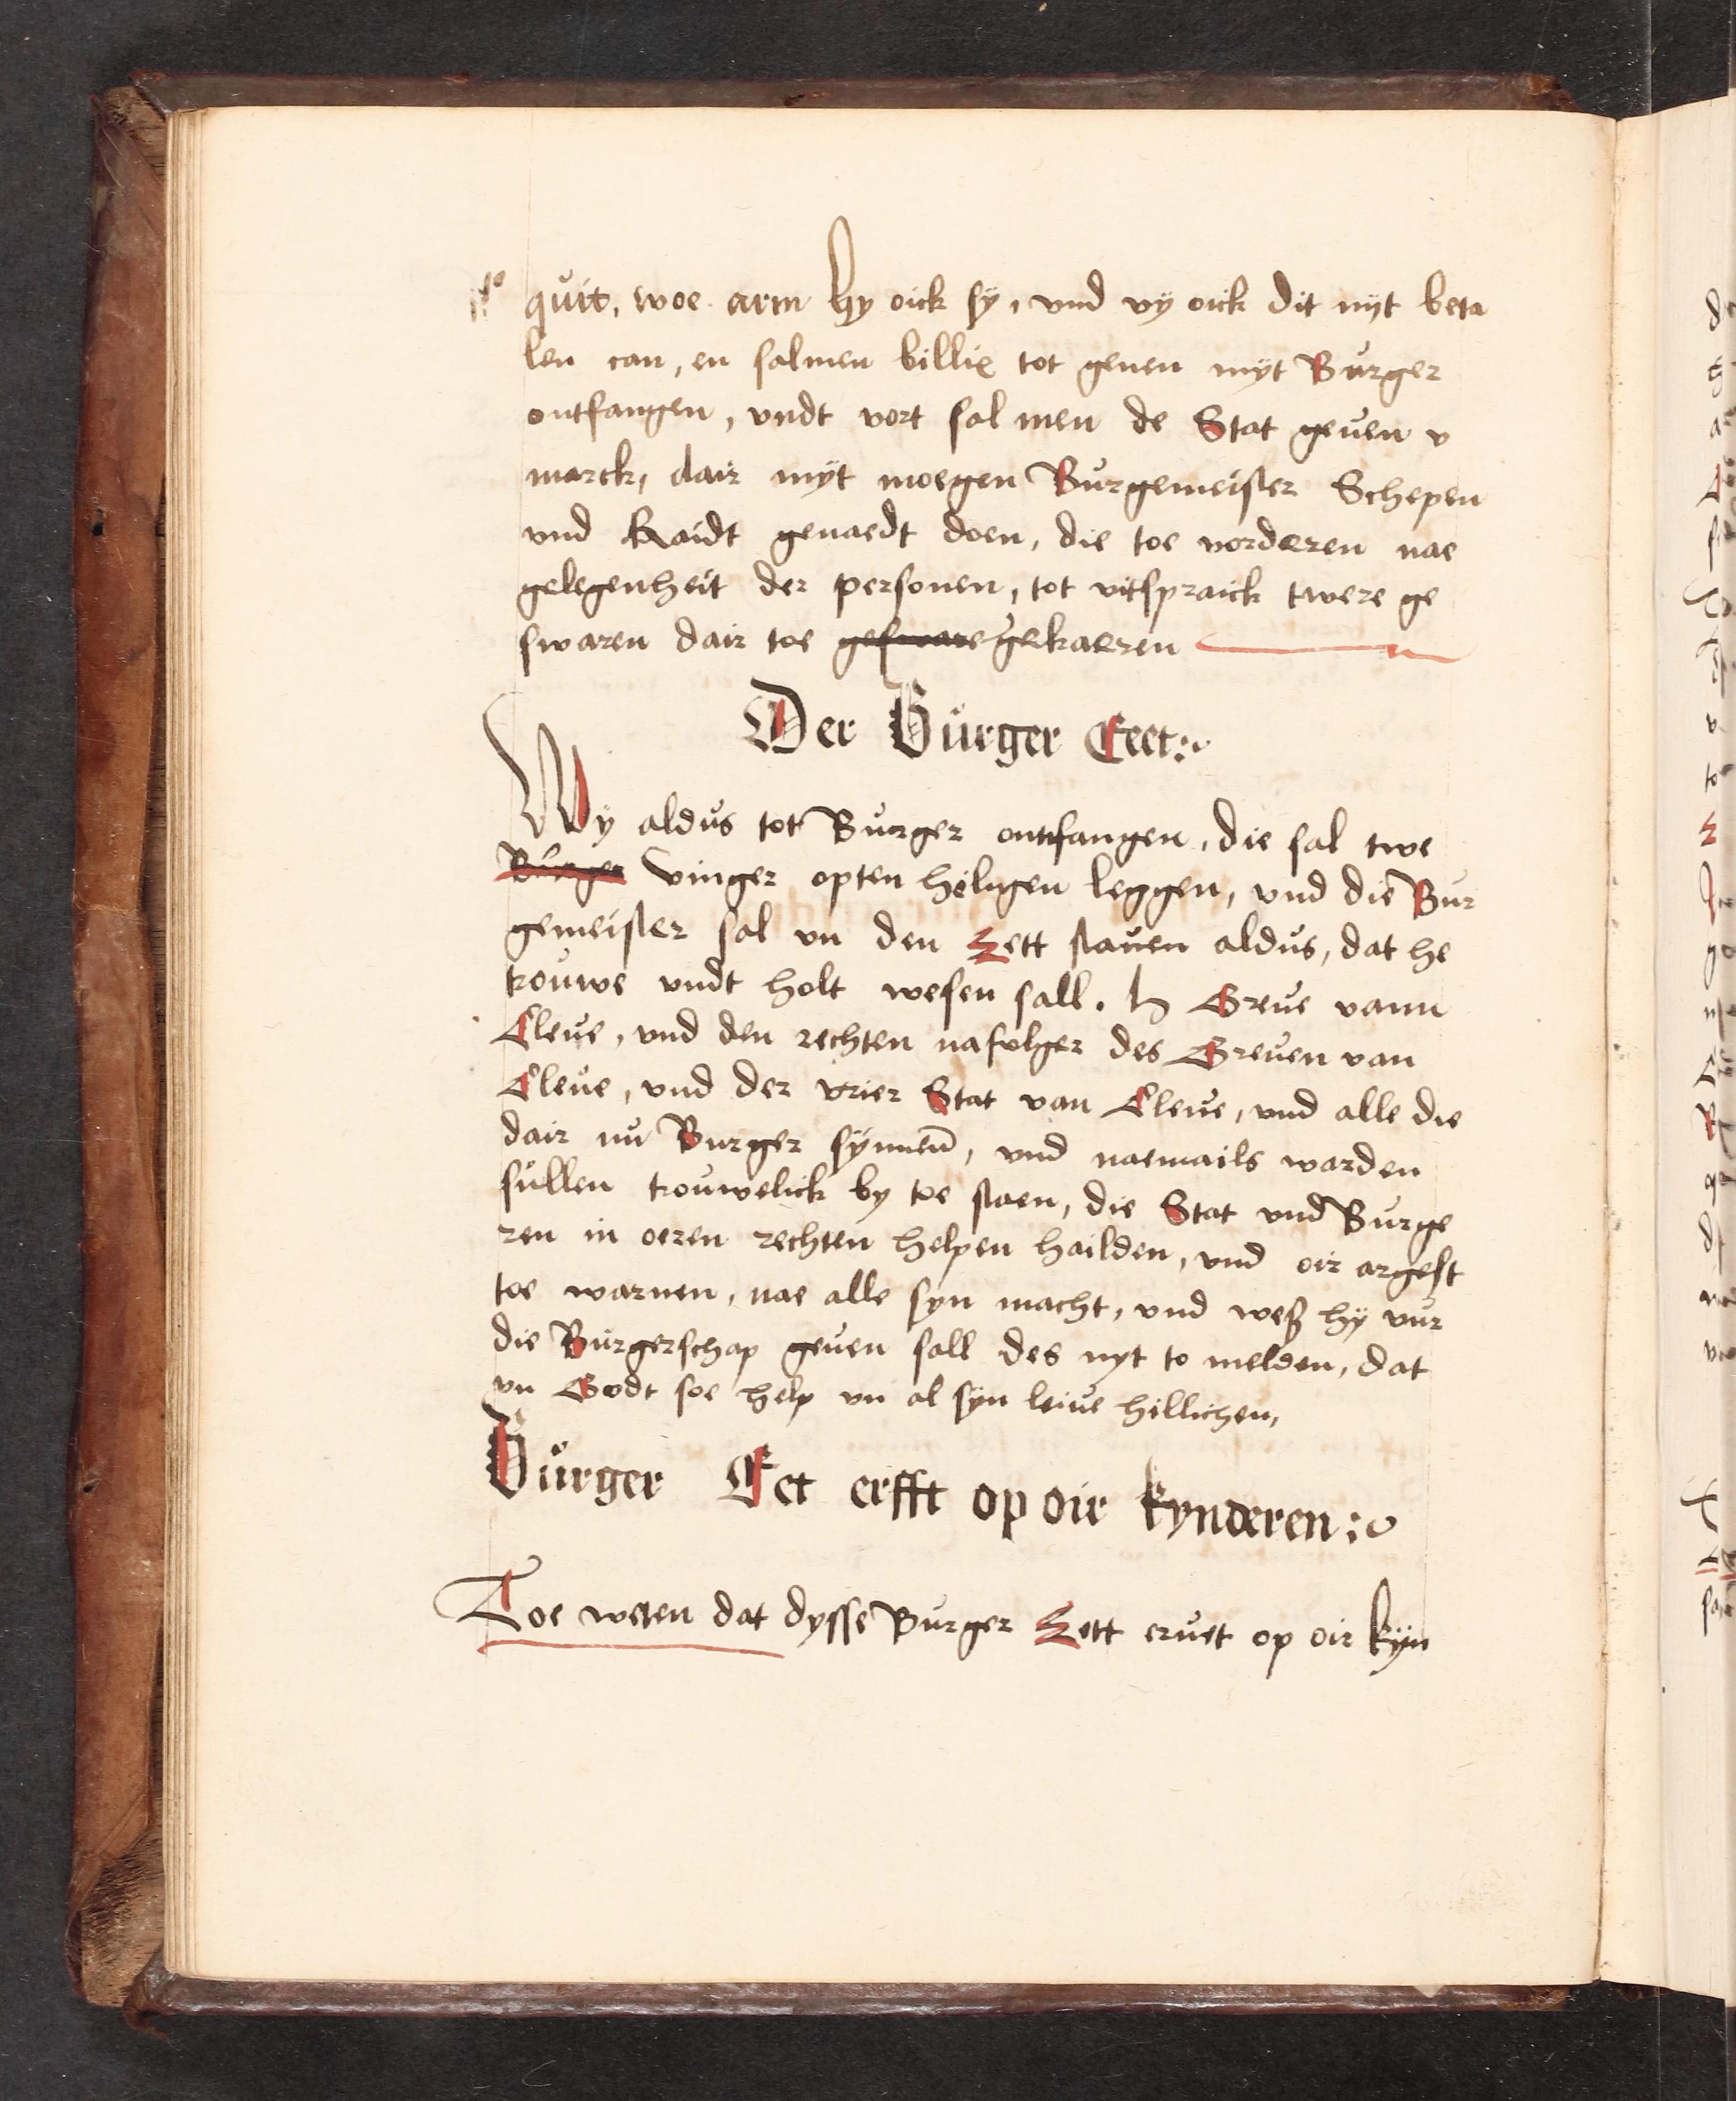 quit, woe arm hy oick sÿ, vnd vy oick dit nyt beta
len can, en salmen billix tot genen nyt Burger
ontfangen, vndt vort sal men de Stat geuen v
marck, dair myt moegen Burgemeister Schepen
vnd Raidt genaedt doen, die toe vorderen nae
gelegenheit der personen, tot vitspraick twere ge
swaren dair toe gesware gekaeren
Der Burger Eeet
Wy aldus tot Burger ontfangen, die sal twe
Burger vinger opten heligen leggen, vnd die Bur
gemeister sal vn den Eett stauen aldus, dat he
trouwe vndt holt wesen sall. h Greue vann
Cleue, vnd den rechten nafolger des Greuen van
Cleue, vnd der vrier Stat van Cleue, vnd alle die
dair nu Burger sÿnnen̄, vnd naemails warden
sullen trouwelick by toe staen, die Stat vnd Burge
ren in oeren rechten helpen hailden, vnd oir argest
toe warnen, nae alle syn macht, vnd weß hÿ vur
die Burgerschap geuen sall des nyt to melden, dat
vn Godt soe help vn al sÿn leiue hillichen,
Burger Eet erfft op oir kynderen
Toe weten dat dysse Burger Eett eruet op oir kÿn